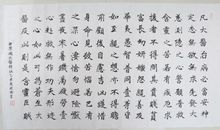 凡大醫治病必當安神
定志無欲無求先發大
慈惻隱之心誓願普救
含靈之苦若有疾厄來
求救者不得問其貴賤
貧富長幼妍蚩怨親善
友華夷愚智普同一等
皆如至親之想亦不得瞻
前顧後自慮吉凶護惜
身命見彼苦惱若己有
之深心悽愴勿避險巇
晝夜寒暑飢渴疲勞
一心赴救無作功夫形迹
之心如此可為蒼生大
醫反此則是含靈巨賊